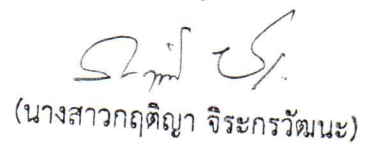 (นางสาวกฤติญา จิระกรวัฒนะ)